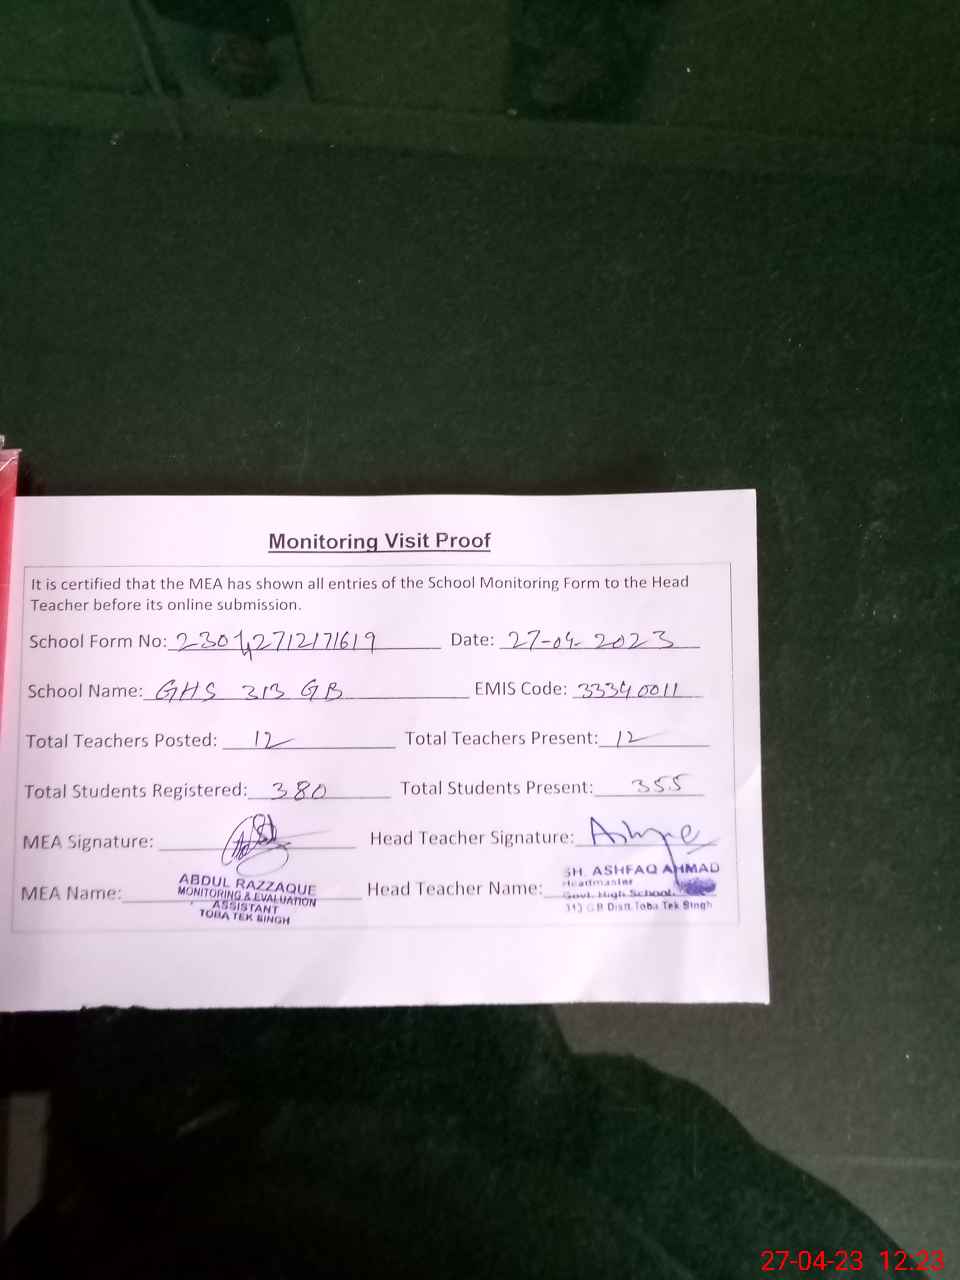 Monitoring Visit Proof
It is certified that the MEA has shown all entries of the School Monitoring Form to the Head
Teacher before its online submission.
School Form No: 2304271217619 Date: 27-04-2023
School Name: GHS 313 GB EMIS Code: 33340011
Total Teachers Posted: 12 Total Teachers Present: 12
Total Students Registered: 380 Total Students Present: 355
MEA Signature: Head Teacher Signature:
MEA Name: Head Teacher Name:
ABDUL RAZZAQUE
MONITORING & EVALUATION
ASSISTANT
TOBA TEK SINGH
SH. ASHFAQ AHMAD
Headmaster
Govt. High School.
313 G.B Distt. Toba Tek Singh
27-04-23 12:23